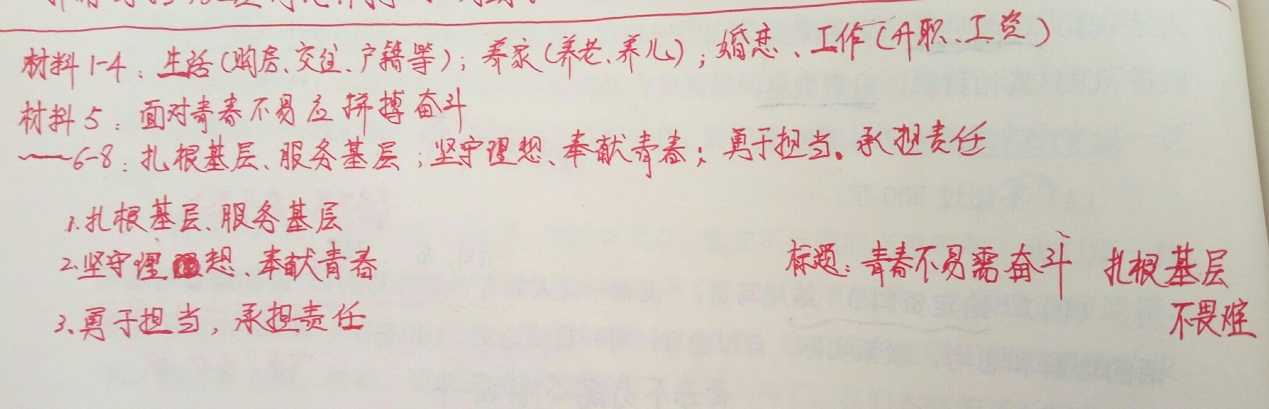 材料1-4：生活(购房、交往、户籍等)；养家(养老、养儿)；婚恋、工作(升职、工资)
材料5：面对青春不易应拼搏奋斗
——6-8：扎根基层、服务基层；坚守理想、奉献青春；勇于担当。承担责任
1.扎根基层、服务基层
2.坚守理想、奉献青春
3.勇于担当，承担责任
标题：青春不易需奋斗 扎根基层
不畏难